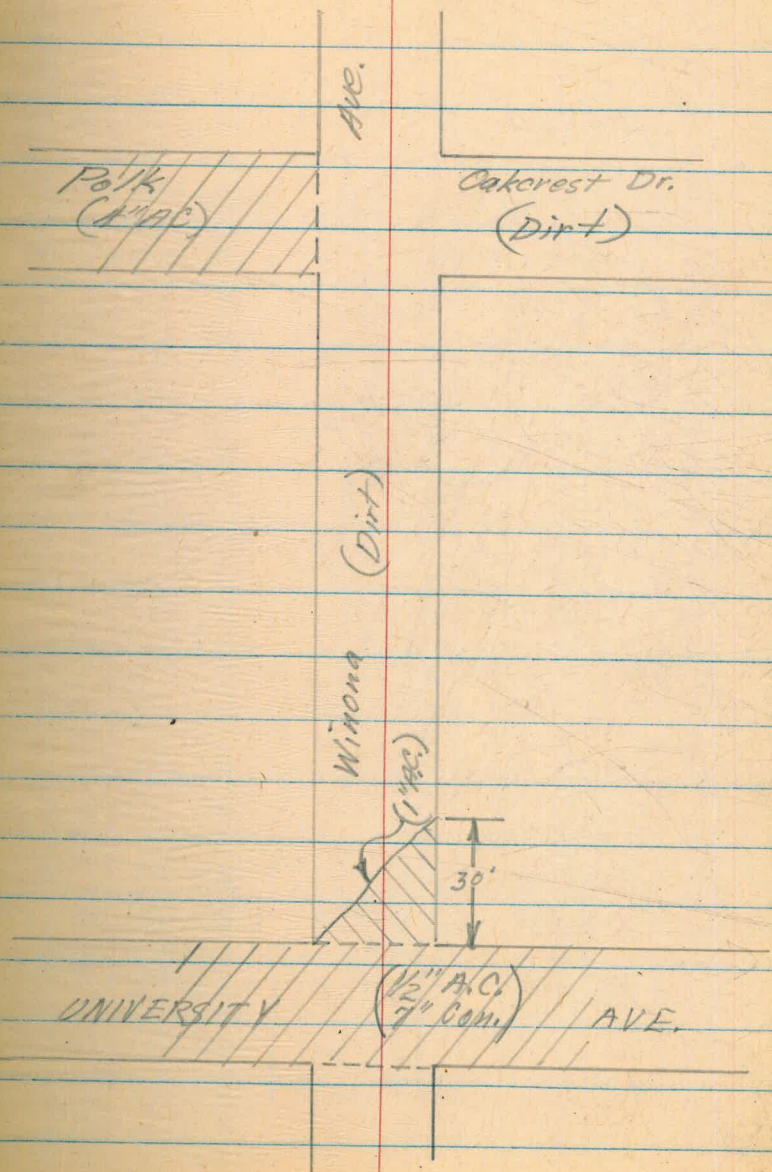 AVE.
Polk
(4" AC)
Oakcrest Dr.
(Dirt)
(Dirt)
Winona
(1" AC.)
30'
UNIVERSITY
(1/2" A.C.
7" Con.)
AVE.